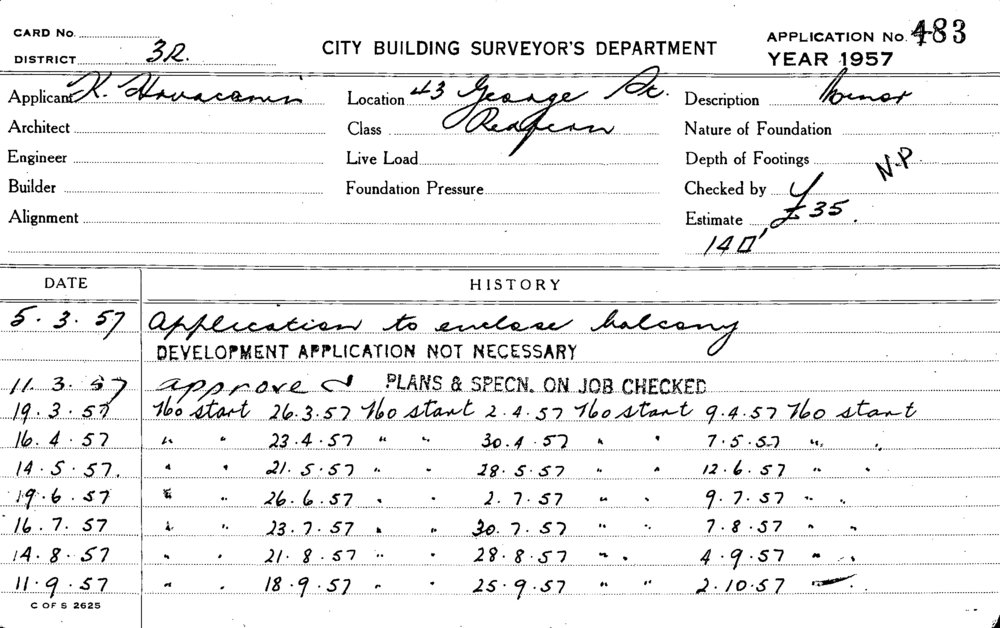 CARD No.
DISTRICT 3R.
CITY BUILDING SURVEYOR'S DEPARTMENT
APPLICATION No. 483
YEAR 1957
Applicant K. Hrvacanin Location 43 George St. Description Minor
Architect Class Redfern Nature of Foundation
Engineer Live Load Depth of Footings N.P
Builder Foundation Pressure Checked by
Alignment Estimate £35.
140□'
DATE HISTORY
5.3.57 Application to enclose balcony
DEVELOPMENT APPLICATION NOT NECESSARY
11.3.57 approved PLANS & SPECN. ON JOB CHECKED
19.3.57 No start 26.3.57 No start 2.4.57 No start 9.4.57 No start
16.4.57 " " 23.4.57 " " 30.4.57 " " 7.5.57 " "
14.5.57. " " 21.5.57 " " 28.5.57 " " 12.6.57 " "
19.6.57 " " 26.6.57 " " 2.7.57 " " 9.7.57 " "
16.7.57 " " 23.7.57 " " 30.7.57 " " 7.8.57 " "
14.8.57 " " 21.8.57 " " 28.8.57 " " 4.9.57 " "
11.9.57 " " 18.9.57 " " 25.9.57 " " 2.10.57
C OF S 2625